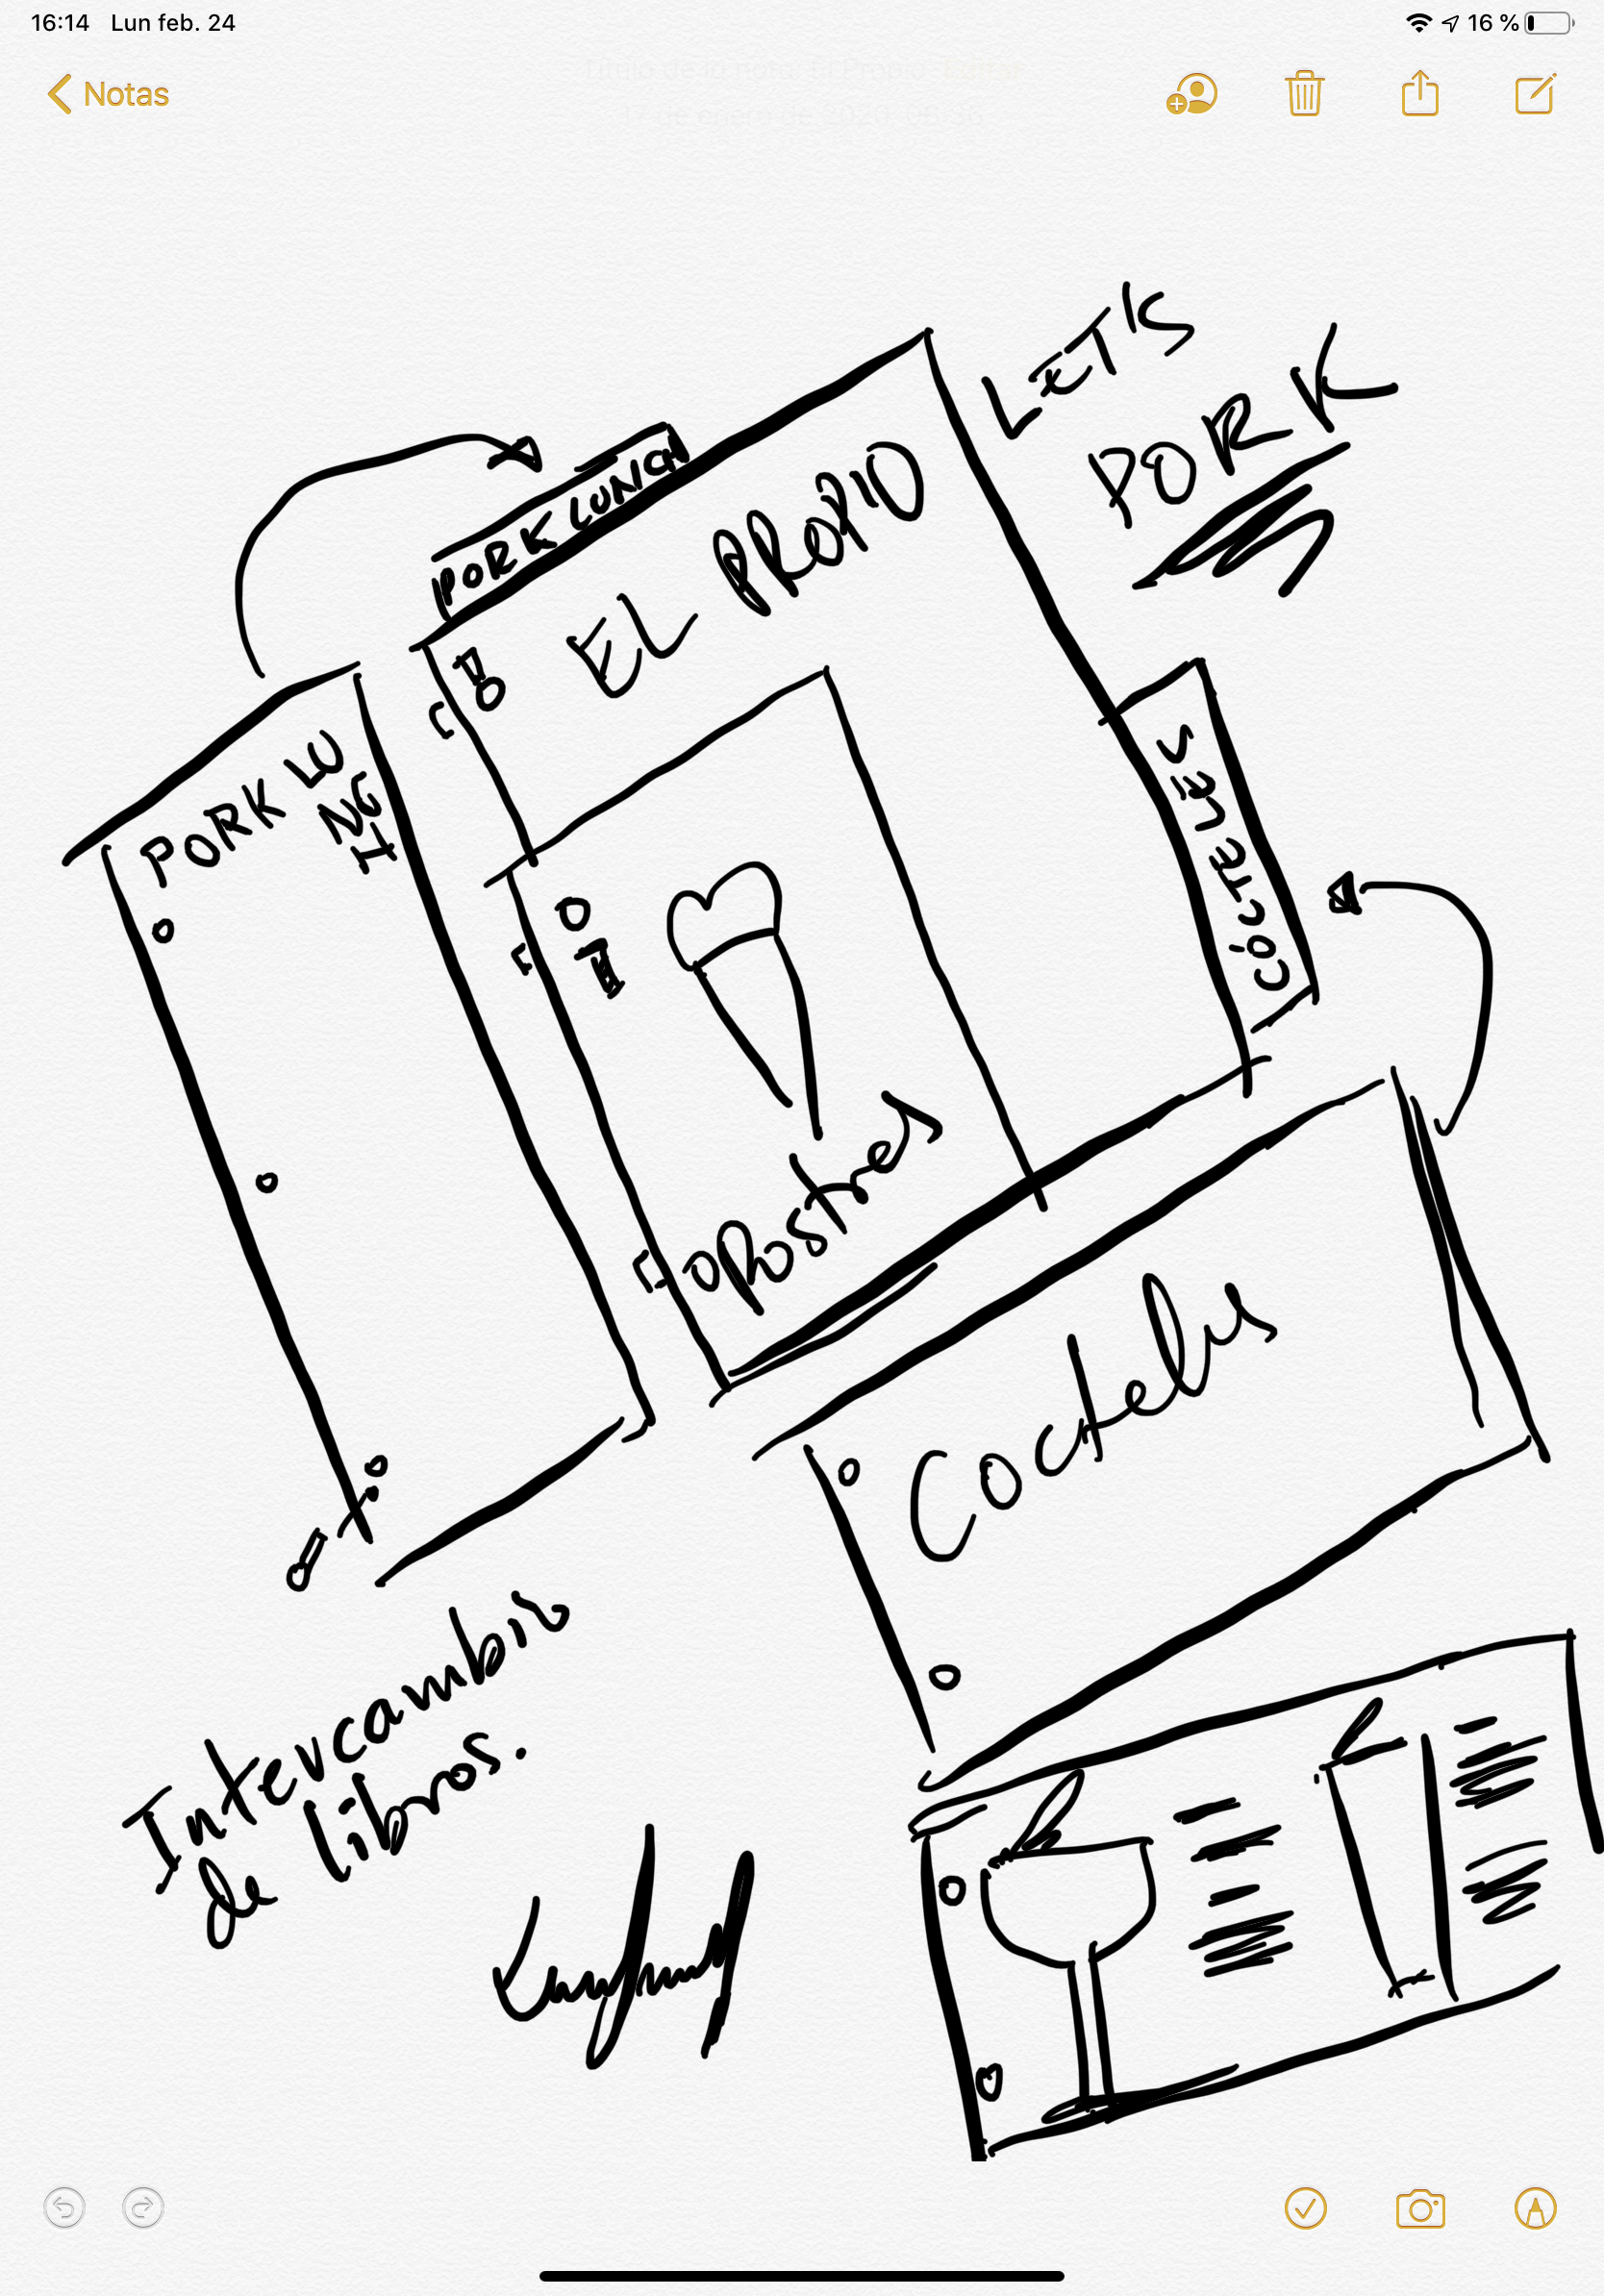 16:14 Lun feb. 24
16 %
Notas
LET'S
PORK
PORK LUNCH
EL PROPIO
CÓCTELES
PORK LU
NC
H
Postres
Cocteles
Intercambio
de libros.